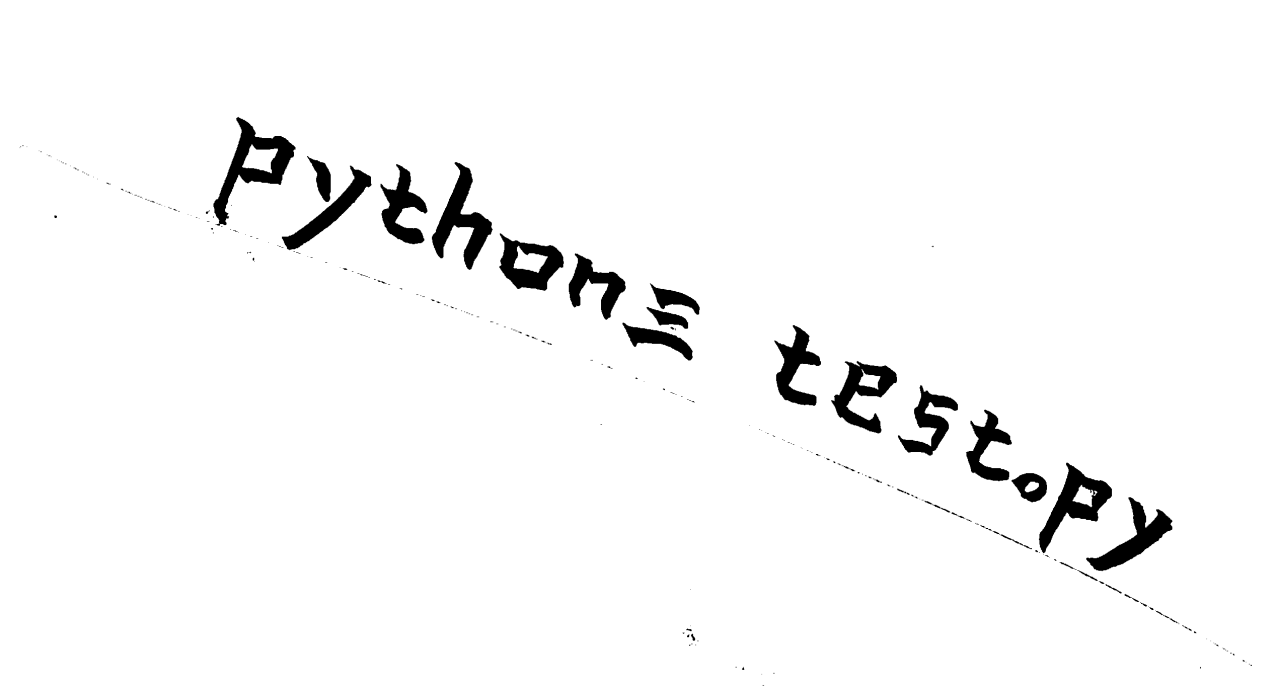 python三 test。py